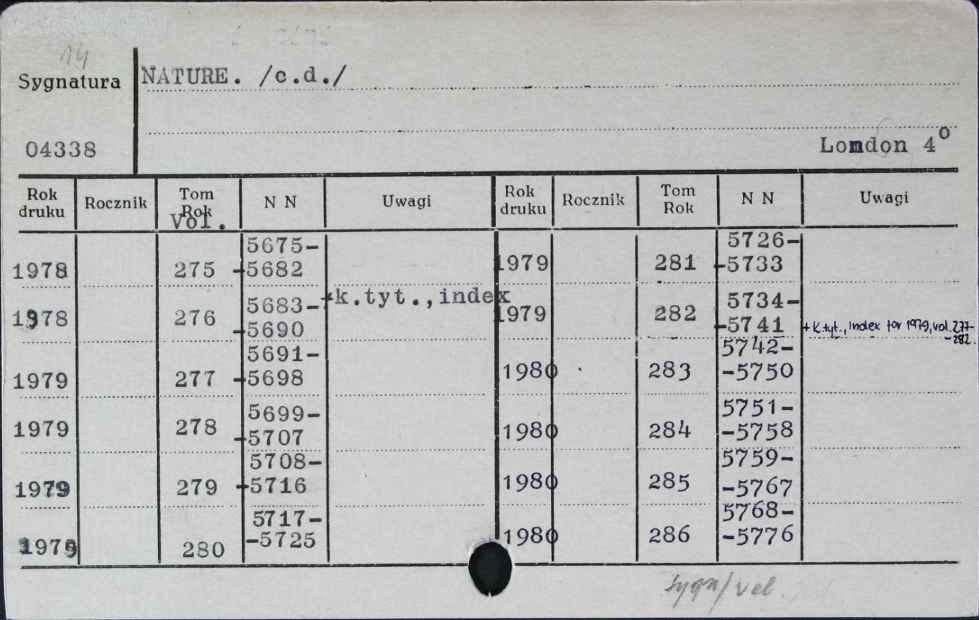 14
Sygnatura
NATURE. /c.d./
04338
London 4°
Rok druku Rocznik Tom Rok Vol. N N Uwagi Rok druku Rocznik Tom Rok N N Uwagi
1978 275 5675-
-5682
1978 276 5683-
-5690 +k.tyt.,index
1979 277 5691-
-5698
1979 278 5699-
-5707
1979 279 5708-
-5716
1979 280 5717-
-5725
1979 281 5726-
-5733
1979 282 5734-
-5741 + k.tyt., index for 1979, vol. 277-
-282.
1980 283 5742-
-5750
1980 284 5751-
-5758
1980 285 5759-
-5767
1980 286 5768-
-5776
sygn/vol